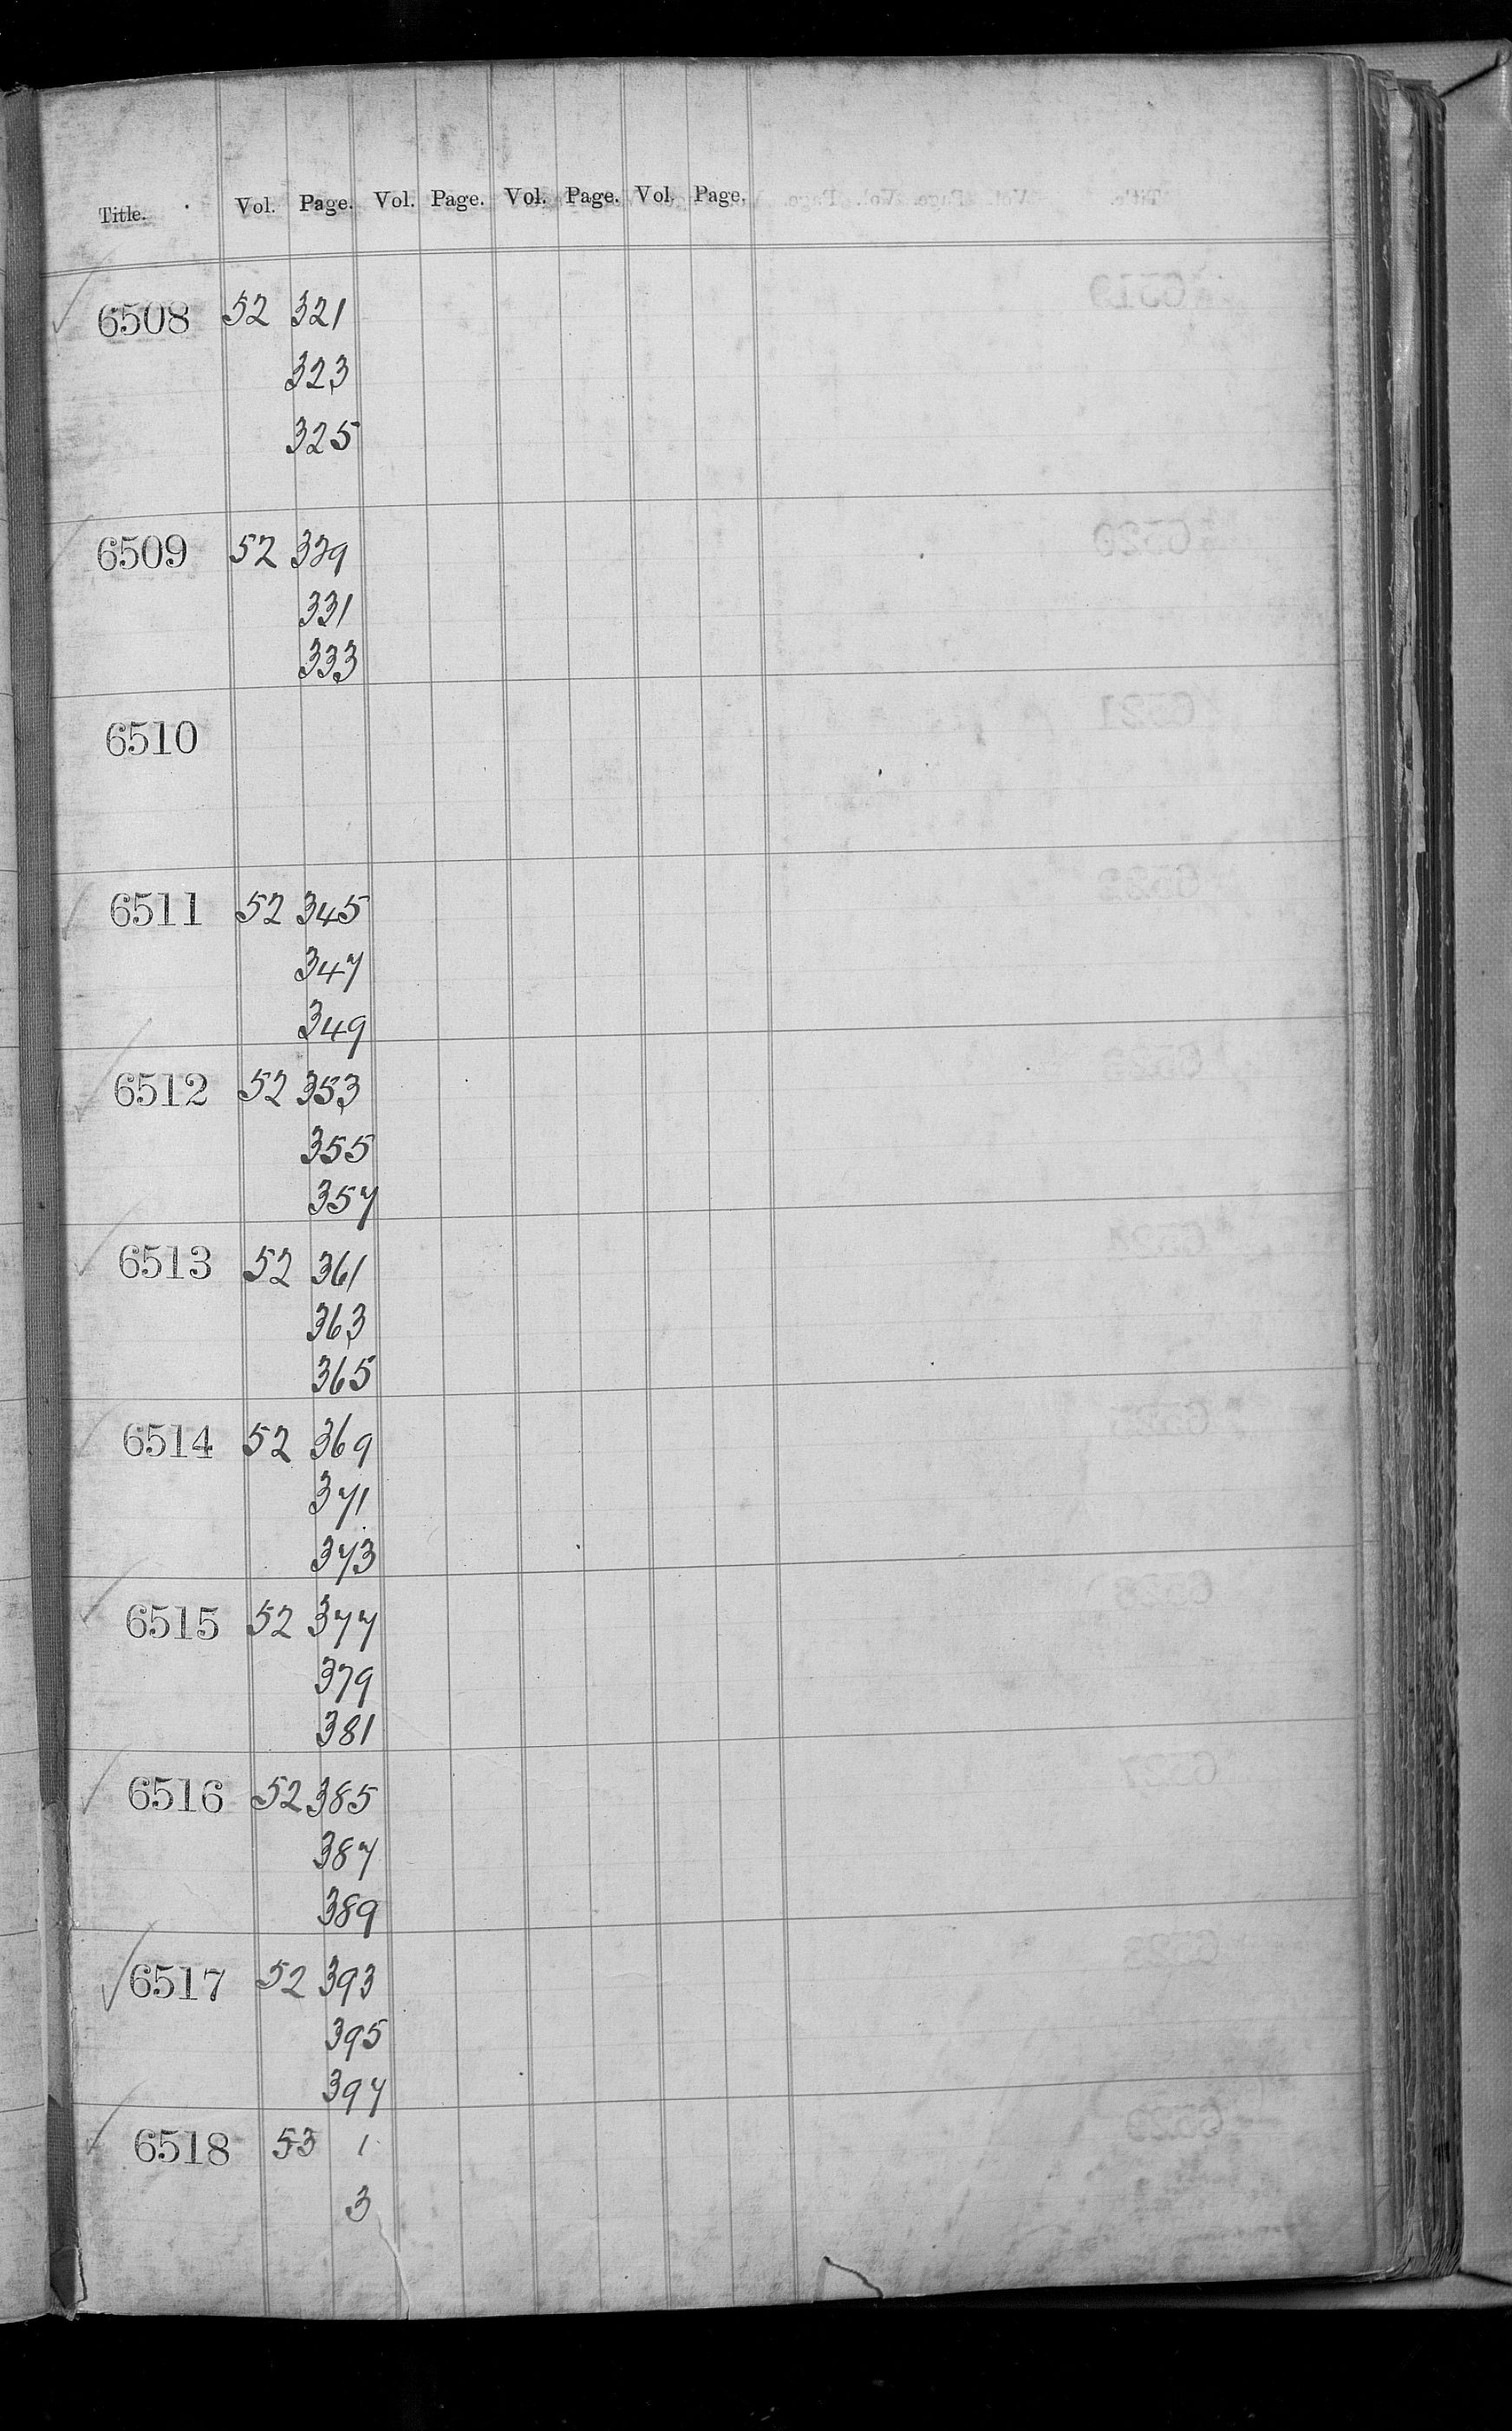 Title. Vol. Page. Vol. Page. Vol. Page. Vol. Page.
6508 52 321
323
325
6509 52 329
331
333
6510
6511 52 345
347
349
6512 52 353
355
357
6513 52 361
363
365
6514 52 369
371
373
6515 52 377
379
381
6516 52 385
387
389
6517 52 393
395
397
6518 53 1
3